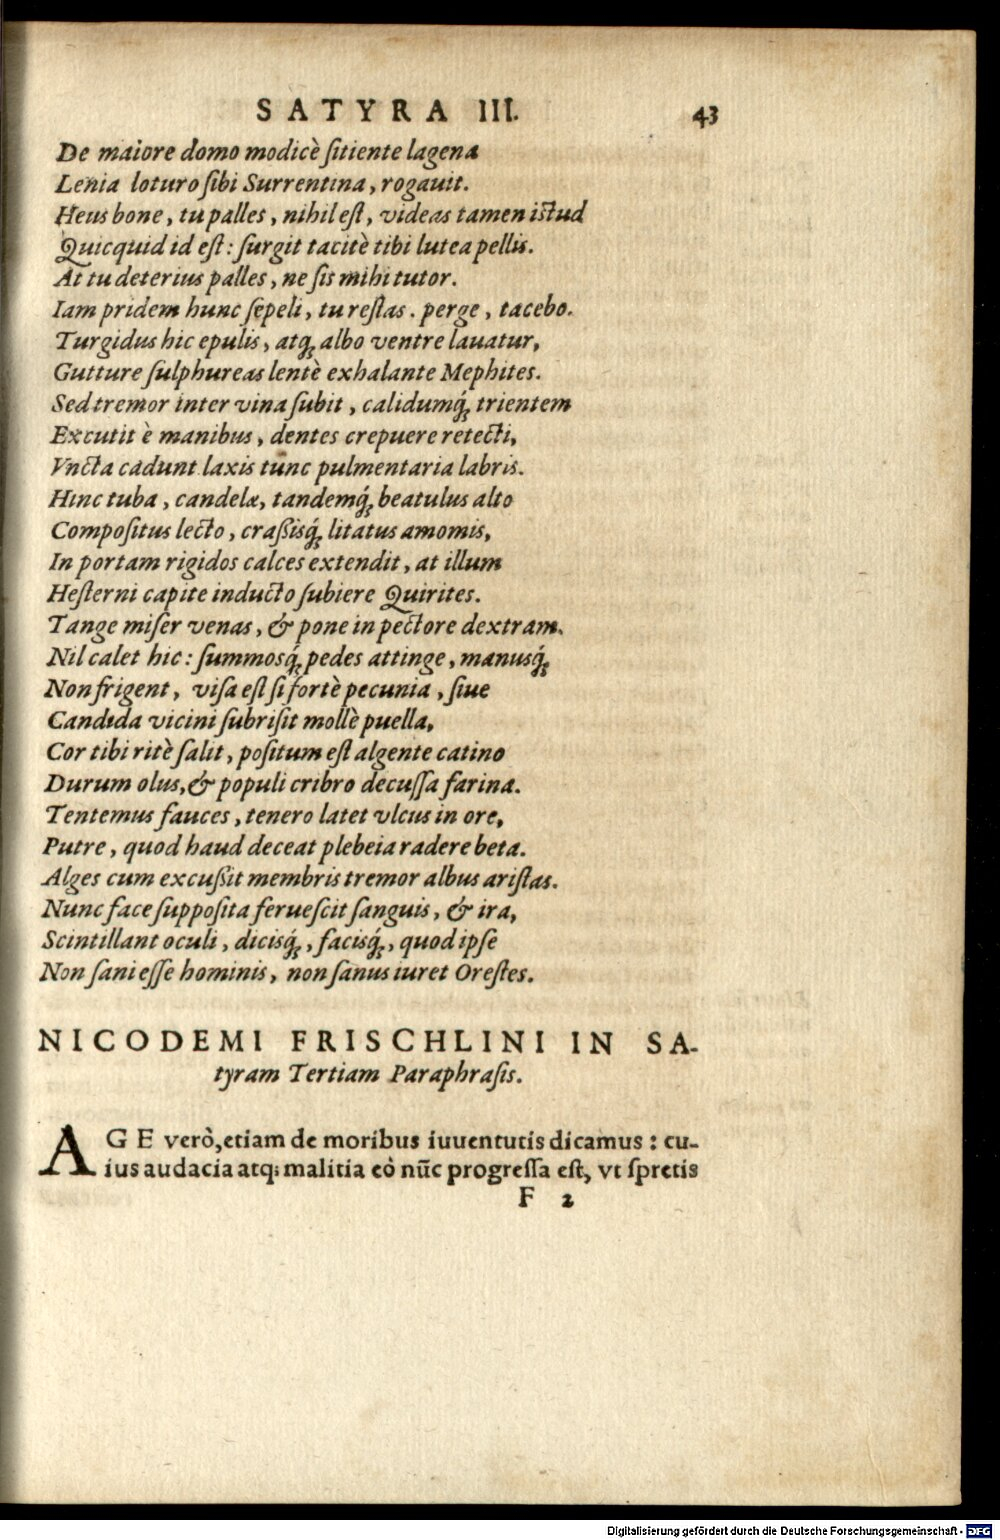 SATYRA III. 43
De maiore domo modicè ſitiente lagena
Lenia loturo ſibi Surrentina, rogauit.
Heus bone, tu palles, nihil eſt, videas tamen iſtud
Quicquid id eſt: ſurgit tacitè tibi lutea pellis.
At tu deterius palles, ne ſis mihi tutor.
Iam pridem hunc ſepeli, tu reſtas. perge, tacebo.
Turgidus hic epulis, atq́; albo ventre lauatur,
Gutture ſulphureas lentè exhalante Mephites.
Sed tremor inter vina ſubit, calidumq́; trientem
Excutit è manibus, dentes crepuere retecti,
Vncta cadunt laxis tunc pulmentaria labris.
Hinc tuba, candelæ, tandemq́; beatulus alto
Compoſitus lecto, craßisq́; litatus amomis,
In portam rigidos calces extendit, at illum
Heſterni capite inducto ſubiere Quirites.
Tange miſer venas, & pone in pectore dextram.
Nil calet hic: ſummosq́; pedes attinge, manusq́;
Non frigent, viſa eſt ſi fortè pecunia, ſiue
Candida vicini ſubriſit mollè puella,
Cor tibi ritè ſalit, poſitum eſt algente catino
Durum olus, & populi cribro decuſſa farina.
Tentemus fauces, tenero latet vlcus in ore,
Putre, quod haud deceat plebeia radere beta.
Alges cum excußit membris tremor albus ariſtas.
Nunc face ſuppoſita ferueſcit ſanguis, & ira,
Scintillant oculi, dicisq́;, facisq́;, quod ipſe
Non ſani eſſe hominis, non ſanus iuret Oreſtes.
NICODEMI FRISCHLINI IN SA-
tyram Tertiam Paraphraſis.
AGE verò, etiam de moribus iuuentutis dicamus: cu-
ius audacia atq; malitia eò nũc progreſſa eſt, vt ſpretis
F 2
Digitalisierung gefördert durch die Deutsche Forschungsgemeinschaft - DFG